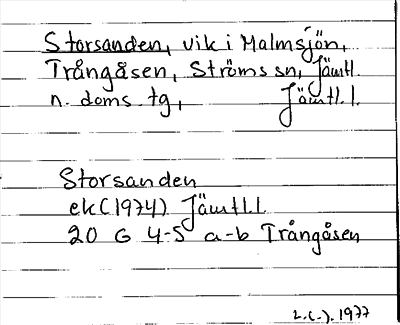 Storsanden, vik i Malmsjön,
Trångåsen, Ströms sn, Jämtl.
n. doms. tg, Jämtl. l.
Storsanden
ek (1974) Jämtl.l.
20 G 4-5 a-b Trångåsen
1977